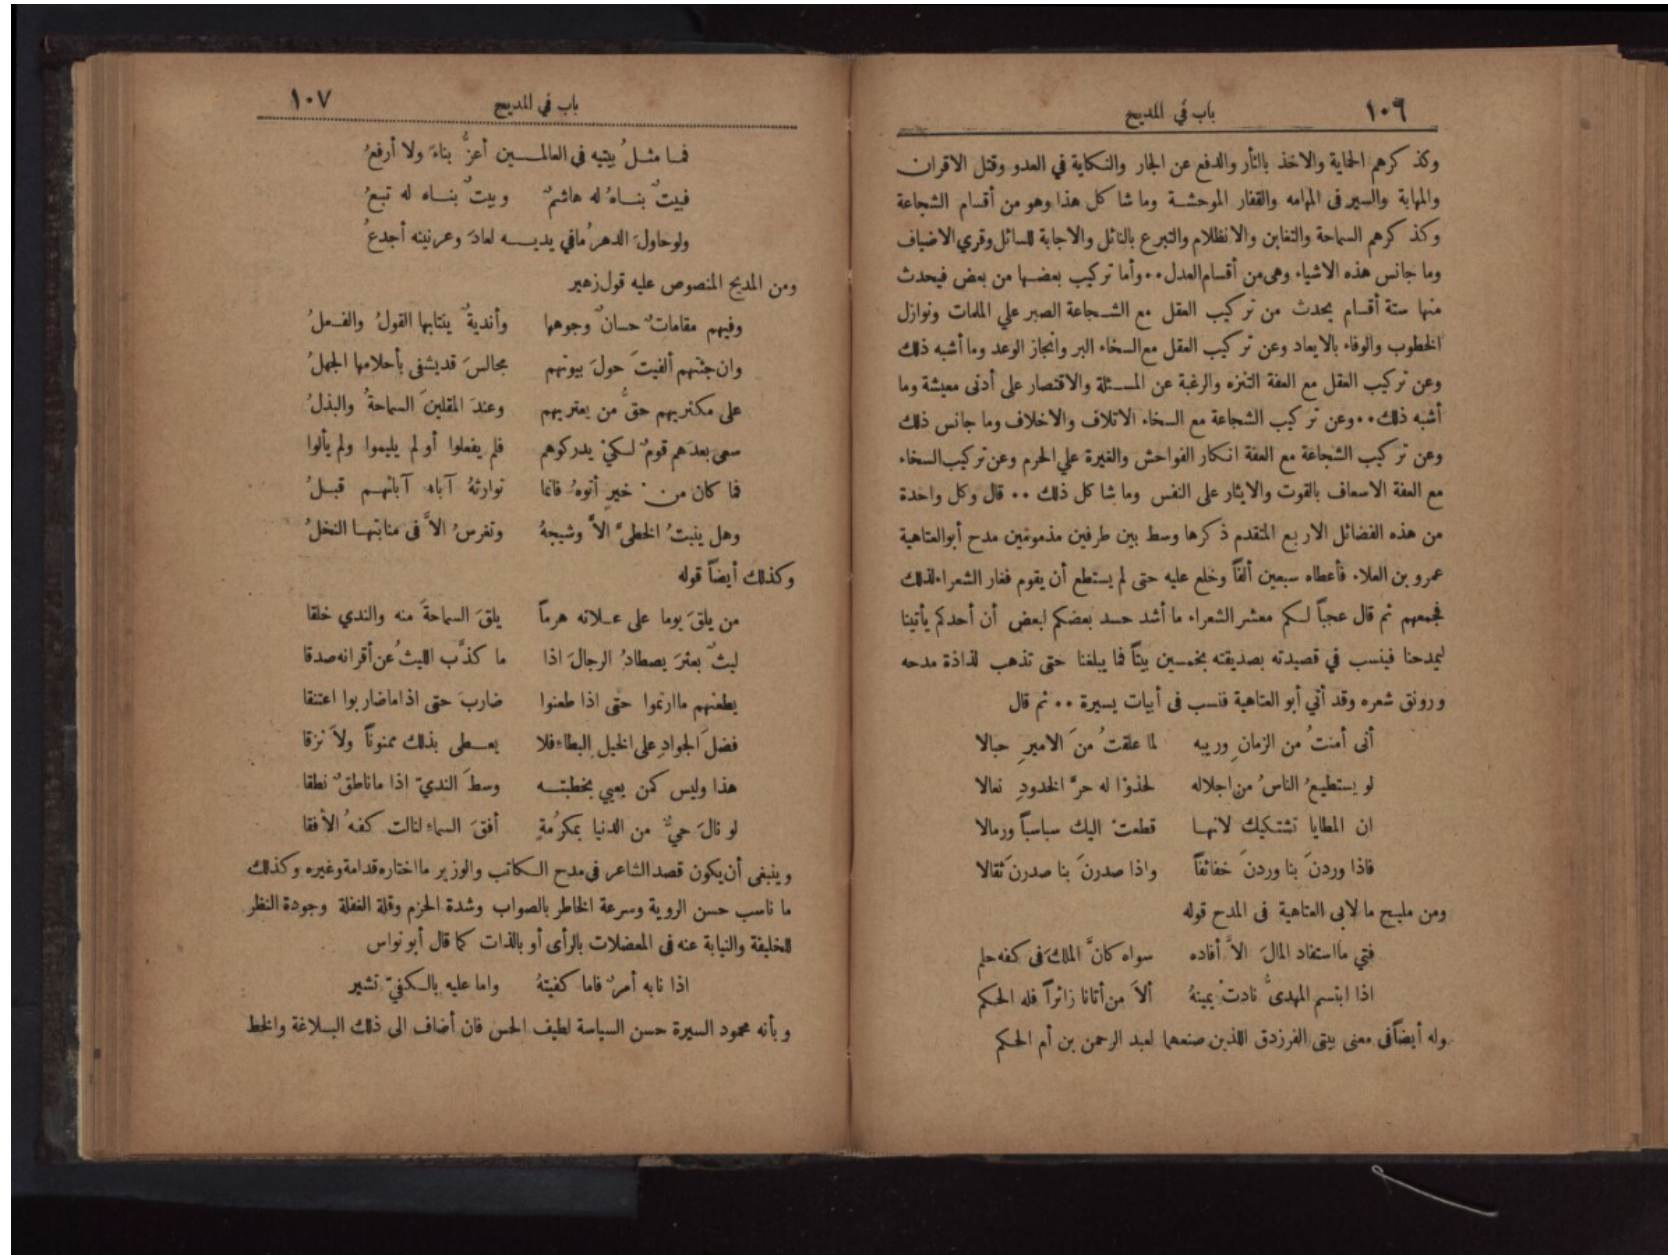 ١٠٦
باب في المديح
وكذكرهم الحماية والاخذ بالثأر والدفع عن الجار والنكاية في العدو وقتل الاقران
والمهابة والسير في المهامه والقفار الموحشة وما شا كل هذا وهو من أقسام الشجاعة
وكذكرهم السماحة والتغابن والانظلام والتبرع بالنائل والاجابة للسائل وقري الاضياف
وما جانس هذه الاشياء وهي من أقسام العدل ٠٠ وأما تركيب بعضها من بعض فيحدث
منها ستة أقسام يحدث من تركيب العقل مع الشجاعة الصبر علي الملمات ونوازل
الخطوب والوفاء بالايعاد وعن تركيب العقل مع السخاء البر وانجاز الوعد وما أشبه ذلك
وعن تركيب العقل مع العفة التنزه والرغبة عن المسئلة والاقتصار على أدنى معيشة وما
أشبه ذلك ٠٠ وعن تركيب الشجاعة مع السخاء الاتلاف والاخلاف وما جانس ذلك
وعن تركيب الشجاعة مع العفة انكار الفواحش والغيرة علي الحرم وعن تركيب السخاء
مع العفة الاسعاف بالقوت والايثار على النفس وما شا كل ذلك ٠٠ قال وكل واحدة
من هذه الفضائل الاربع المتقدم ذكرها وسط بين طرفين مذمومين مدح أبوالعتاهية
عمرو بن العلاء فأعطاه سبعين ألفاً وخلع عليه حتى لم يستطع أن يقوم فغار الشعراء لذلك
فجمعهم ثم قال عجباً لكم معشر الشعراء ما أشد حسد بعضكم لبعض أن أحدكم يأتينا
ليمدحنا فينسب في قصيدته بصديقته بخمسين بيتاً فما يبلغنا حتى تذهب لذاذة مدحه
ورونق شعره وقد أتي أبو العتاهية فنسب فى أبيات يسيرة ٠٠ ثم قال
أنى أمنتُ من الزمانِ وريبه لما علقتُ منَ الاميرِ حبالا
لو يستطيعُ الناسُ من اجلاله لحذوْا له حرَّ الخدودِ نعالا
ان المطايا تشتكيك لانها قطعتْ اليك سباسباً ورمالا
فاذا وردنَ بنا وردنَ خفائفاً واذا صدرنَ بنا صدرنَ ثقالا
ومن مليح ما لابي العتاهية فى المدح قوله
فتي ما استفاد المالَ الاَّ أفاده سواه كانَّ الملكَ فى كفه حلم
اذا ابتسم المهدىُّ نادتْ يمينهُ ألاَ من أتانا زائراً فله الحكم
وله أيضاً فى معنى بيتى الفرزدق اللذين صنعهما لعبد الرحمن بن أم الحكم
باب في المديح
١٠٧
فما مثلُ بيتيه فى العالمين أعزُّ بناءً ولا أرفعُ
فبيتٌ بناهُ له هاشمٌ وبيتٌ بناه له تبعُ
ولو حاولَ الدهرُ مافي يديه لعادَ وعرنينه أجدعُ
ومن المديح المنصوص عليه قول زهير
وفيهم مقاماتٌ حسانٌ وجوهها وأنديةٌ ينتابها القولُ والفعلُ
وان جئتهم ألفيتَ حولَ بيوتهم مجالسَ قد يشفى بأحلامها الجهلُ
على مكثريهم حقُّ من يعتريهم وعندَ المقلينَ السماحةُ والبذلُ
سعى بعدَهم قومٌ لكيْ يدركوهم فلم يفعلوا أو لم يليموا ولم يألوا
فما كان من خيرٍ أتوهُ فانما توارثهُ آباء آبائهم قبلُ
وهل ينبتُ الخطىَّ الاَّ وشيجهُ وتغرسُ الاَّ فى منابتها النخلُ
وكذلك أيضاً قوله
من يلقَ يوما على علاته هرماً يلقَ السماحةَ منه والندي خلقا
ليثٌ بعثرَ يصطادُ الرجالَ اذا ما كذَّب الليثُ عن أقرانه صدقا
يطعنهم ما ارتموا حتى اذا طعنوا ضاربَ حتى اذا ماضاربوا اعتنقا
فضلَ الجوادِ على الخيل البطاءِ فلا يعطى بذلك ممنوناً ولاَ نزقا
هذا وليس كمن يعيي بخطبته وسطَ النديّ اذا ما ناطقٌ نطقا
لو نالَ حيٌّ من الدنيا بمكرُمةٍ أفقَ السماءِ لنالت كفهُ الأفقا
وينبغى أن يكون قصد الشاعر فى مدح الكاتب والوزير ما اختاره قدامة وغيره وكذلك
ما ناسب حسن الروية وسرعة الخاطر بالصواب وشدة الحزم وقلة الغفلة وجودة النظر
للخليفة والنيابة عنه فى المعضلات بالرأى أو بالذات كما قال أبو نواس
اذا نابه أمرٌ فاما كفيتهُ واما عليه بالكفيّ تشير
وبأنه محمود السيرة حسن السياسة لطيف الحس فان أضاف الى ذلك البلاغة والخط